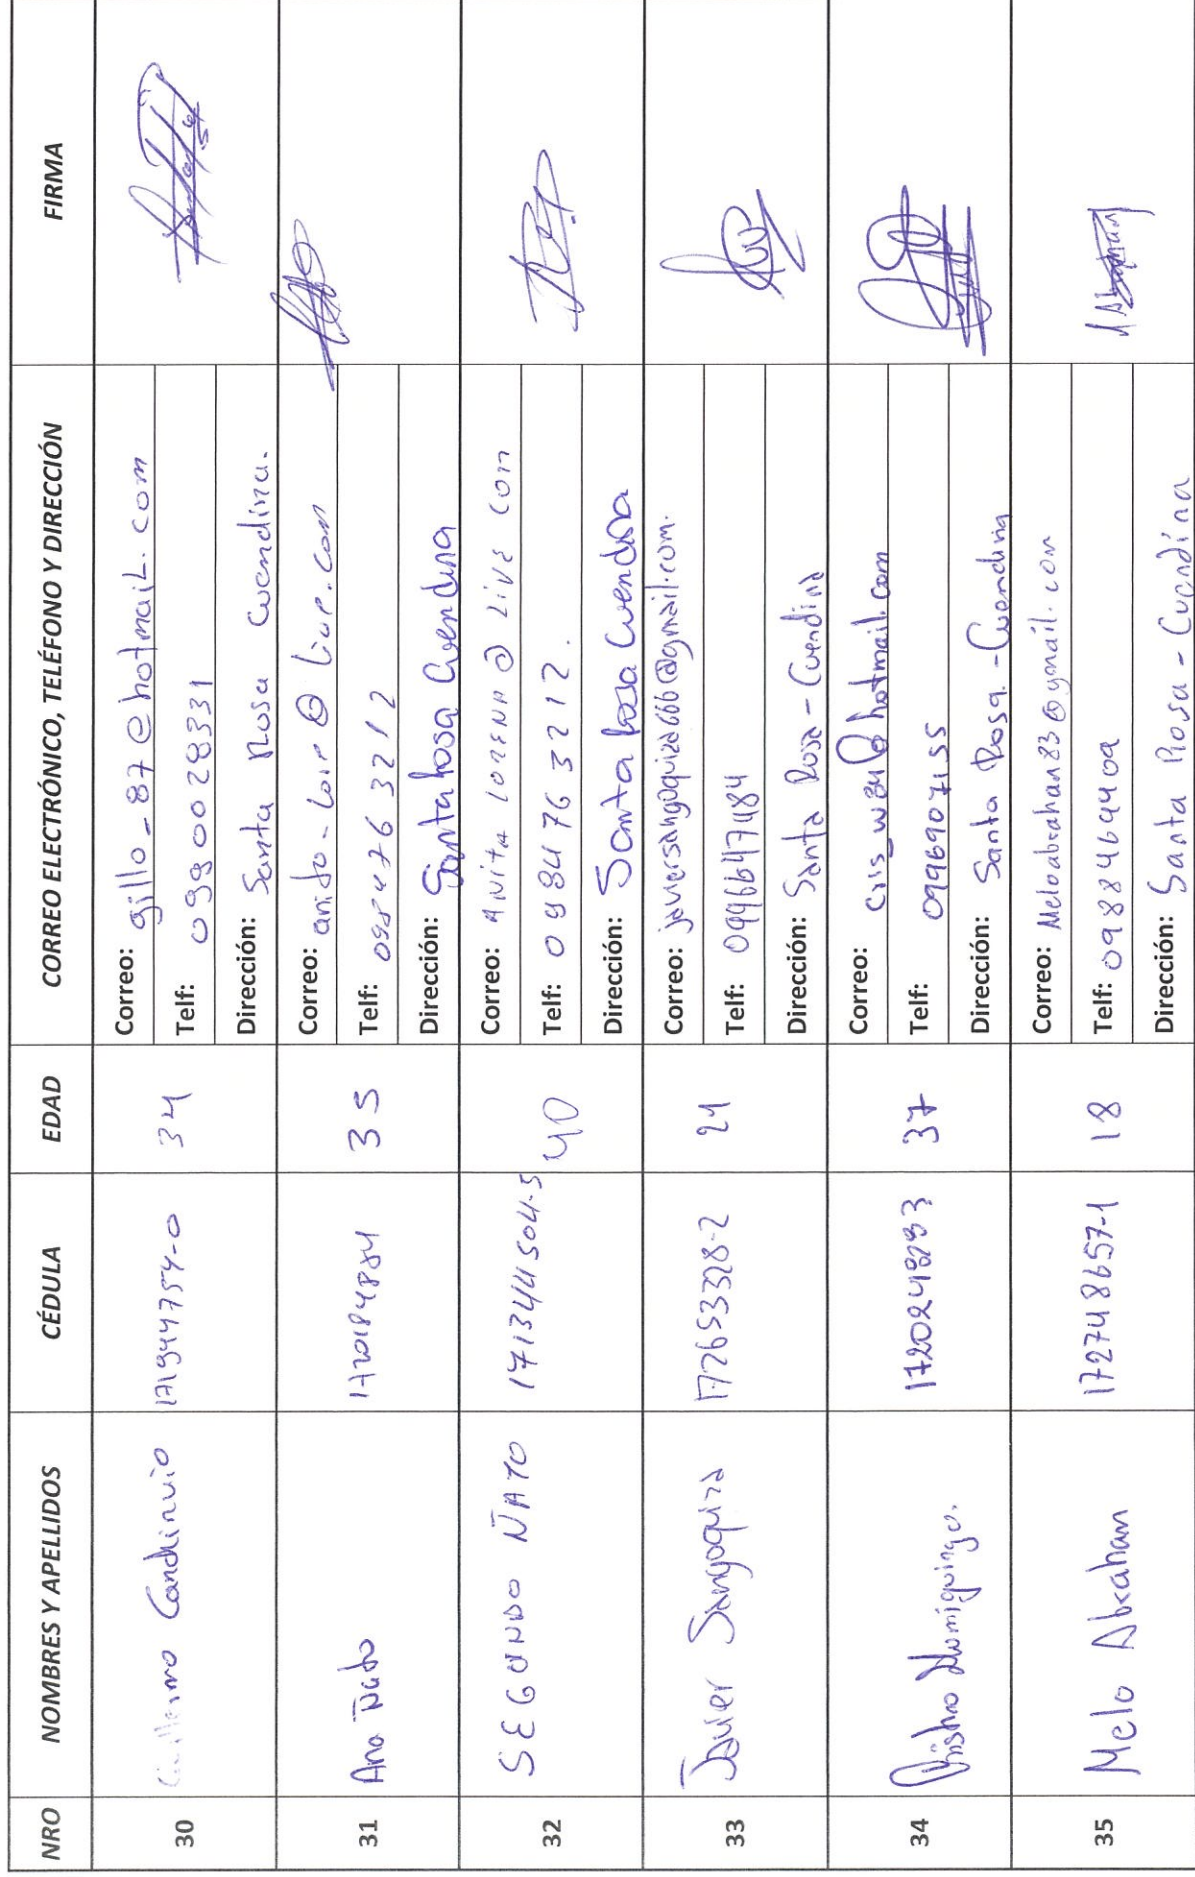 NRO NOMBRES Y APELLIDOS CÉDULA EDAD CORREO ELECTRÓNICO, TELÉFONO Y DIRECCIÓN FIRMA
30 Guillermo 171944754-0 34
Correo: gillo_87@hotmail.com
Telf: 0990028331
Dirección: Santa Rosa Cuendina.
31 Ana Ñato 1720184884 35
Correo:
Telf: 0984763212
Dirección: Santa Rosa Cuendina
32 SEGUNDO ÑATO 171344504-5 40
Correo: Anita LORENA@Live Com
Telf: 0984763212.
Dirección: Santa Rosa Cuendina
33 Javier Sangoquiza 172653328-2 21
Correo: javiersangoquiza666@gmail.com.
Telf: 0996647484
Dirección: Santa Rosa - Cuendina
34
37
Correo:
Telf: 0996907155
Dirección: Santa Rosa - Cuendina
35 Melo Abraham 172748657-1 18
Correo: Meloabrahan83@gmail.com
Telf: 0988464409
Dirección: Santa Rosa - Cuendina